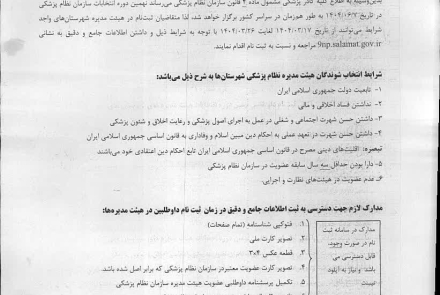 بدین‌وسیله به اطلاع کلیه کادر پزشکی مشمول ماده ۴ قانون سازمان نظام پزشکی می‌رساند نهمین دوره انتخابات سازمان نظام پزشکی
در تاریخ ۱۴۰۴/۰۶/۷ به طور همزمان در سراسر کشور برگزار خواهد شد، لذا متقاضیان ثبت‌نام در هیئت مدیره شهرستان‌های واجد
شرایط می‌توانند از تاریخ ۱۴۰۴/۰۳/۱۷ لغایت ۱۴۰۴/۰۳/۲۶ با توجه به شرایط ذیل و داشتن اطلاعات جامع و دقیق به نشانی
9np.salamat.gov.ir مراجعه و نسبت به ثبت نام اقدام نمایند.
شرایط انتخاب شوندگان هیئت مدیره نظام پزشکی شهرستان‌ها به شرح ذیل می‌باشد:
۱- تابعیت دولت جمهوری اسلامی ایران
۲- نداشتن فساد اخلاقی و مالی
۳- داشتن حسن شهرت اجتماعی و شغلی در عمل به اجرای اصول پزشکی و رعایت اخلاق و شئون پزشکی
۴- داشتن حسن شهرت در تعهد عملی به احکام دین مبین اسلام و وفاداری به قانون اساسی جمهوری اسلامی ایران
تبصره: اقلیت‌های دینی مصرح در قانون اساسی جمهوری اسلامی ایران تابع احکام دین اعتقادی خود می‌باشند
۵- دارا بودن حداقل سه سال سابقه عضویت در سازمان نظام پزشکی
۶- عدم عضویت در هیئت‌های نظارت و اجرایی.
مدارک لازم جهت دسترسی به ثبت اطلاعات جامع و دقیق در زمان ثبت نام داوطلبین در هیئت مدیره‌ها:
۱. فتوکپی شناسنامه (تمام صفحات)
۲. تصویر کارت ملی
۳. قطعه عکس ۳×۴
۴. تصویر کارت عضویت معتبر در سازمان نظام پزشکی که برابر اصل شده باشد
۵. تکمیل پرسشنامه داوطلبی عضویت هیئت مدیره سازمان نظام پزشکی
مدارک در سامانه ثبت
نام در صورت وجود،
قابل دسترسی می
باشد و نیاز به آپلود
نیست